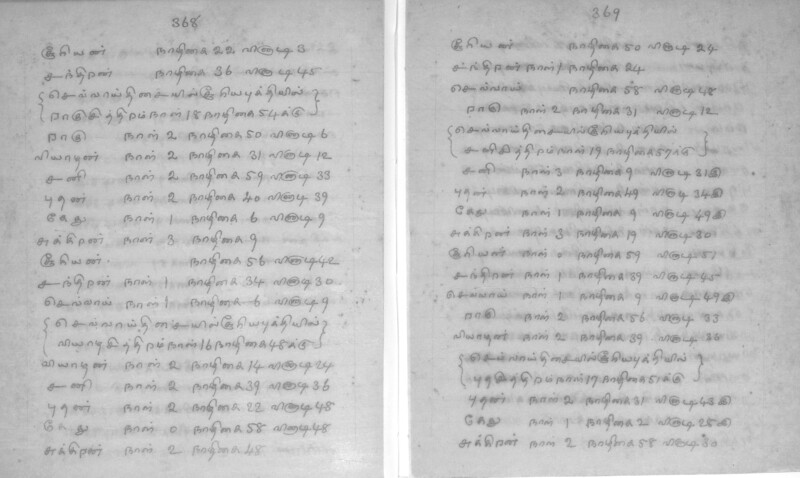 368
சூரியன் நாழிகை 22 வினாடி 3
சந்திரன் நாழிகை 36 வினாடி 45
செவ்வாய்திசையில் சூரியபுக்தியில்
ராகுசித்திரம் நாள் 18 நாழிகை 54க்கு
ராகு நாள் 2 நாழிகை 50 வினாடி 6
வியாழன் நாள் 2 நாழிகை 31 வினாடி 12
சனி நாள் 2 நாழிகை 59 வினாடி 33
புதன் நாள் 2 நாழிகை 40 வினாடி 39
கேது நாள் 1 நாழிகை 6 வினாடி 9
சுக்கிரன் நாள் 3 நாழிகை 9
சூரியன் நாழிகை 56 வினாடி 42
சந்திரன் நாள் 1 நாழிகை 34 வினாடி 30
செவ்வாய் நாள் 1 நாழிகை 6 வினாடி 9
செவ்வாய்திசையில் சூரியபுக்தியில்
வியாழசித்திரம் நாள் 16 நாழிகை 48க்கு
வியாழன் நாள் 2 நாழிகை 14 வினாடி 24
சனி நாள் 2 நாழிகை 39 வினாடி 36
புதன் நாள் 2 நாழிகை 22 வினாடி 48
கேது நாள் 0 நாழிகை 58 வினாடி 48
சுக்கிரன் நாள் 2 நாழிகை 48
369
சூரியன் நாழிகை 50 வினாடி 24
சந்திரன் நாள் 1 நாழிகை 24
செவ்வாய் நாழிகை 58 வினாடி 48
ராகு நாள் 2 நாழிகை 31 வினாடி 12
செவ்வாய்திசையில் சூரியபுக்தியில்
சனிசித்திரம் நாள் 19 நாழிகை 57க்கு
சனி நாள் 3 நாழிகை 9 வினாடி 31
புதன் நாள் 2 நாழிகை 49 வினாடி 34
கேது நாள் 1 நாழிகை 9 வினாடி 49
சுக்கிரன் நாள் 3 நாழிகை 19 வினாடி 30
சூரியன் நாள் 0 நாழிகை 59 வினாடி 51
சந்திரன் நாள் 1 நாழிகை 39 வினாடி 45
செவ்வாய் நாள் 1 நாழிகை 9 வினாடி 49
ராகு நாள் 2 நாழிகை 56 வினாடி 33
வியாழன் நாள் 2 நாழிகை 39 வினாடி 36
செவ்வாய்திசையில் சூரியபுக்தியில்
புதசித்திரம் நாள் 17 நாழிகை 51க்கு
புதன் நாள் 2 நாழிகை 31 வினாடி 43
கேது நாள் 1 நாழிகை 2 வினாடி 28
சுக்கிரன் நாள் 2 நாழிகை 58 வினாடி 30